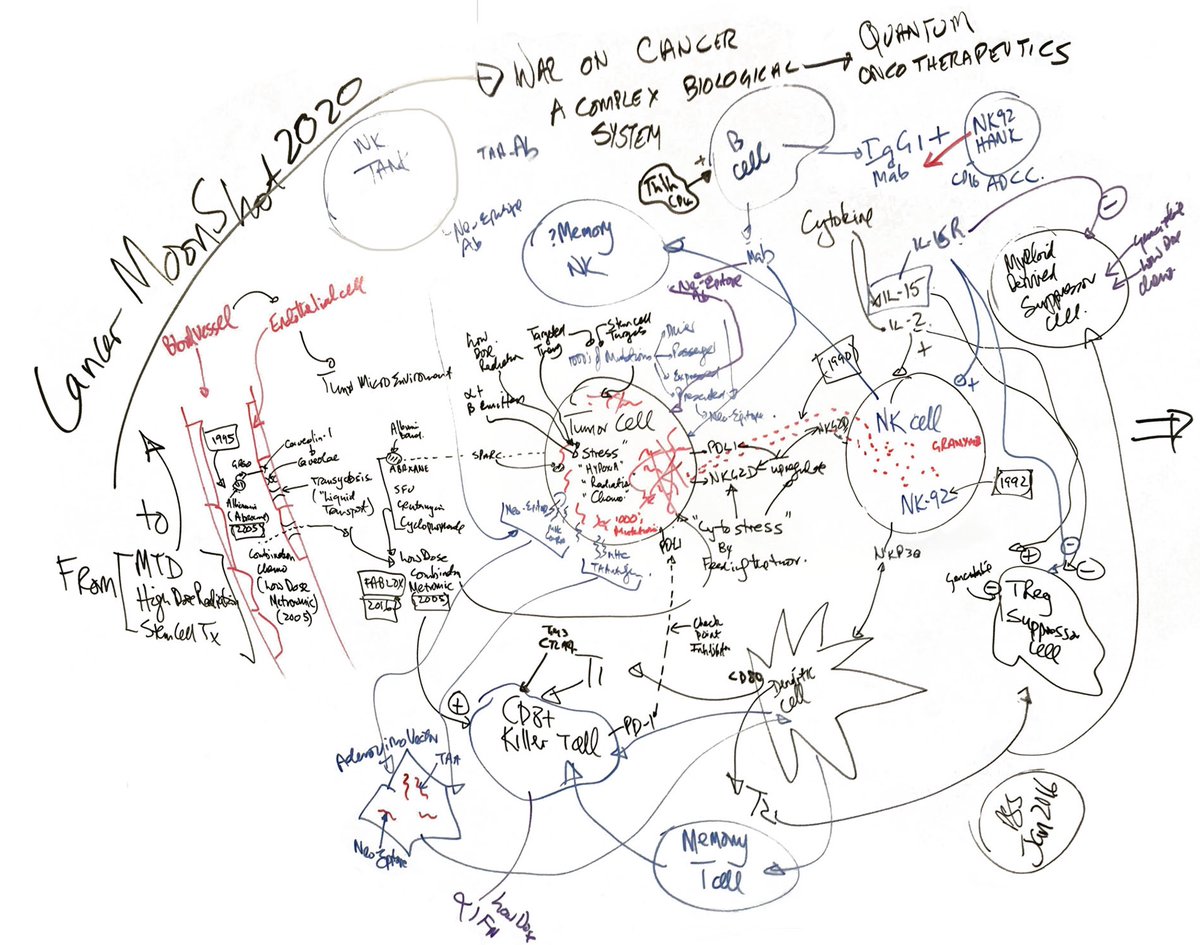 Cancer MoonShot 2020
WAR ON CANCER
A COMPLEX BIOLOGICAL
SYSTEM
QUANTUM
ONCOTHERAPEUTICS
NK
TANK
TAA-Ab
Neo-Epitope
Ab
B
Cell
+
IgG1 +
Mab
NK92
HANK
CD16 ADCC.
?Memory
NK
Mab
Neo-Epitope
Ab
Cytokine
IL-15R
IL-15
IL-2
+
+
-
Myeloid
Derived
Suppressor
Cell.
Gemcitabine
Low Dose
Chemo
Blood vessel
Endothelial cell
Tumor MicroEnvironment
Low
Dose
Radiation
Targeted
Therapy
Stem Cell
Targets
1000's of Mutations
Driver
Passenger
Expressed
Presented
Neo-Epitope.
α+
B emitters
1990
Tumor Cell
"Stress"
"Hypoxia"
"Radiation
"Chemo"
1000's
Mutations
SPARC
PDL1
NKG2D
NKG2D
upregulate
"Cytostress"
By
PDL1
NK cell
GRANZYME
NK-92
1992
NKP30
1995
GP60
Caveolin-1
Caveolae
Transcytosis
("Liquid
Transport")
Albumin
(Abraxane)
2005
Albumin
bound.
ABRAXANE
5FU
Cyclophosphamide
Combination
Chemo
(Low Dose
Metronomic
(2005)
Low Dose
Combination
Metronomic
(2005)
FABLOX
2016
Neo-Epitope
MHC
MHC
TO
FROM
MTD
High Dose Radiation
Stem Cell Tx
Check
Point
Inhibitor
CTLA4
T1
+
CD8+
Killer T cell
PD-1
CD80
Dendritic
Cell
T2
Gemcitabine
-
+
-
-
TReg
Suppressor
Cell
Adenovirus Vector
TAA
Neo-Epitope
Memory
T cell
Low Dox
PSS
Jan 2016